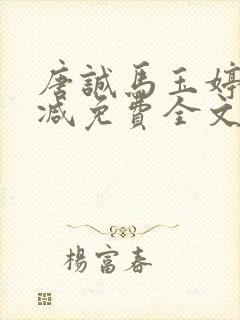 唐誠馬玉婷
減免費全文
楊富春